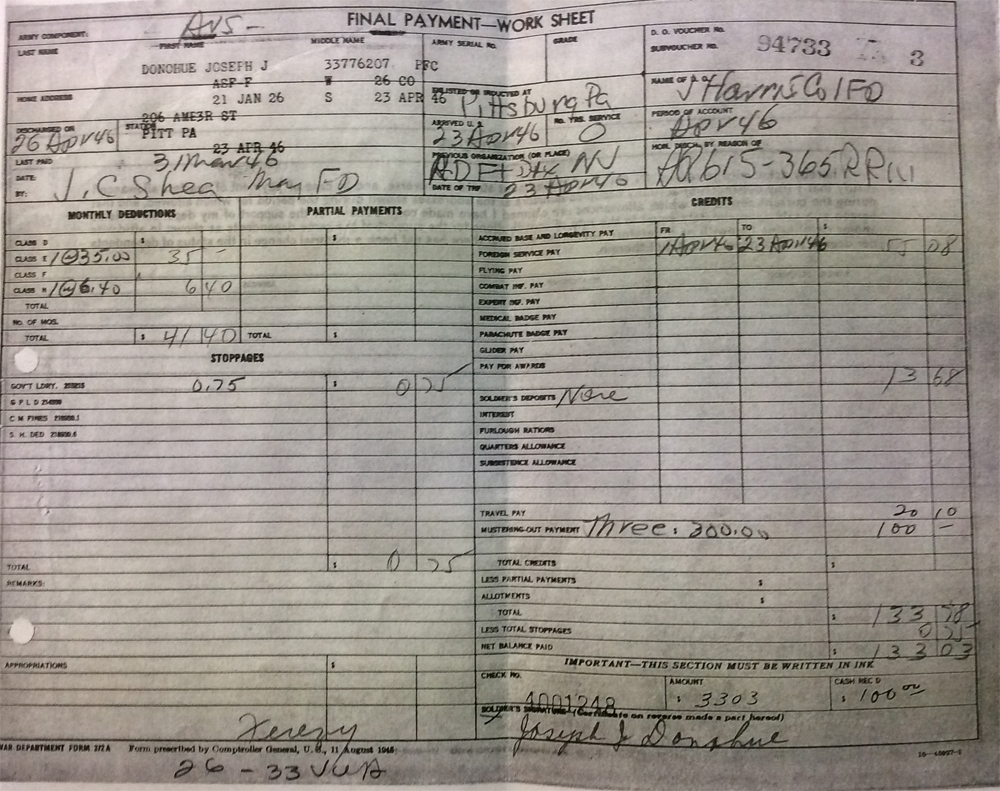 AUS - FINAL PAYMENT—WORK SHEET
ARMY COMPONENT:
LAST NAME FIRST NAME MIDDLE NAME ARMY SERIAL NO. GRADE D. O. VOUCHER NO.
SUBVOUCHER NO. 94733 3
DONOHUE JOSEPH J 33776207 PFC
ASF-F W 26 CO
HOME ADDRESS 21 JAN 26 S 23 APR 46
ENLISTED OR INDUCTED AT Pittsburg Pa
NAME OF D. O. J Harris Col FD
206 AMESR ST
DISCHARGED ON 26 Apr 46 STATION PITT PA
ARRIVED U. S. 23 Apr 46 NO. YRS. SERVICE 0
PERIOD OF ACCOUNT Apr 46
23 APR 46
LAST PAID 31 Mar 46
PREVIOUS ORGANIZATION (OR PLACE) Ft Dix NJ
HON. DISCH. BY REASON OF AR 615-365 RR
DATE:
BY: J. C Shea Maj FD
DATE OF TRF 23 Apr 46
MONTHLY DEDUCTIONS PARTIAL PAYMENTS CREDITS
FR TO $
CLASS D $ $ ACCRUED BASE AND LONGEVITY PAY 1 Apr 46 23 Apr 46 55 08
CLASS E 1@35.00 35 FOREIGN SERVICE PAY
CLASS F FLYING PAY
CLASS N 1@6.40 6 40 COMBAT INF. PAY
TOTAL EXPERT INF. PAY
NO. OF MOS. MEDICAL BADGE PAY
TOTAL $ 41 40 TOTAL $ PARACHUTE BADGE PAY
GLIDER PAY
STOPPAGES
PAY FOR AWARDS
13 68
GOV'T LDRY. 0.75 $ 0 75
SOLDIER'S DEPOSITS None
G P L D
C M FINES INTEREST
S. H. DED FURLOUGH RATIONS
QUARTERS ALLOWANCE
SUBSISTENCE ALLOWANCE
TRAVEL PAY 20 10
MUSTERING-OUT PAYMENT Three: 300.00 100 —
TOTAL $ 0 75 TOTAL CREDITS $
REMARKS: LESS PARTIAL PAYMENTS $
ALLOTMENTS $
TOTAL $ 133 78
LESS TOTAL STOPPAGES 0 75
NET BALANCE PAID $ 133 03
APPROPRIATIONS $
IMPORTANT—THIS SECTION MUST BE WRITTEN IN INK
CHECK NO. 4001248 AMOUNT $ 3303 CASH REC'D $ 100 00
SOLDIER'S SIGNATURE (Certificate on reverse made a part hereof)
Joseph J Donohue
WAR DEPARTMENT FORM 372A Form prescribed by Comptroller General, U. S., 11 August 1945